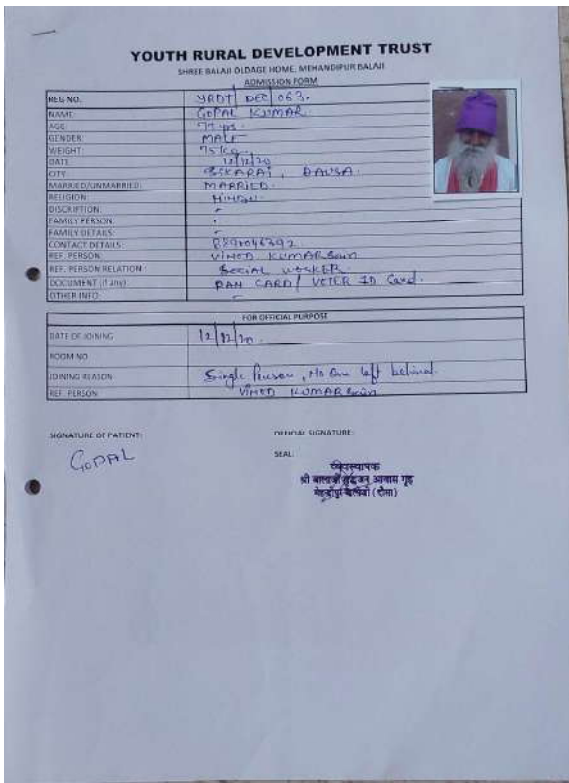 YOUTH RURAL DEVELOPMENT TRUST
SHREE BALAJI OLDAGE HOME, MEHANDIPUR BALAJI
ADMISSION FORM
REG NO. YRDT/ DEC/ 063.
NAME: GOPAL KUMAR.
AGE: yrs.
GENDER: MALE
WEIGHT: 75 kg.
DATE: 12/12/20
CITY: , DAUSA.
MARRIED/UNMARRIED: MARRIED.
RELIGION: HINDU.
DISCRIPTION:
FAMILY PERSON:
FAMILY DETAILS:
CONTACT DETAILS:
REF. PERSON: VINOD KUMAR
REF. PERSON RELATION: SOCIAL WORKER
DOCUMENT (if any): PAN CARD/ VOTER ID Card.
OTHER INFO:
FOR OFFICIAL PURPOSE
DATE OF JOINING 12/12/20.
ROOM NO
JOINING REASON Single Person, No One left behind.
REF. PERSON VINOD KUMAR
SIGNATURE OF PATIENT: OFFICIAL SIGNATURE:
GOPAL
SEAL:
व्यवस्थापक
श्री बालाजी वृद्धजन आवास गृह
मेहन्दीपुर बालाजी (दौसा)